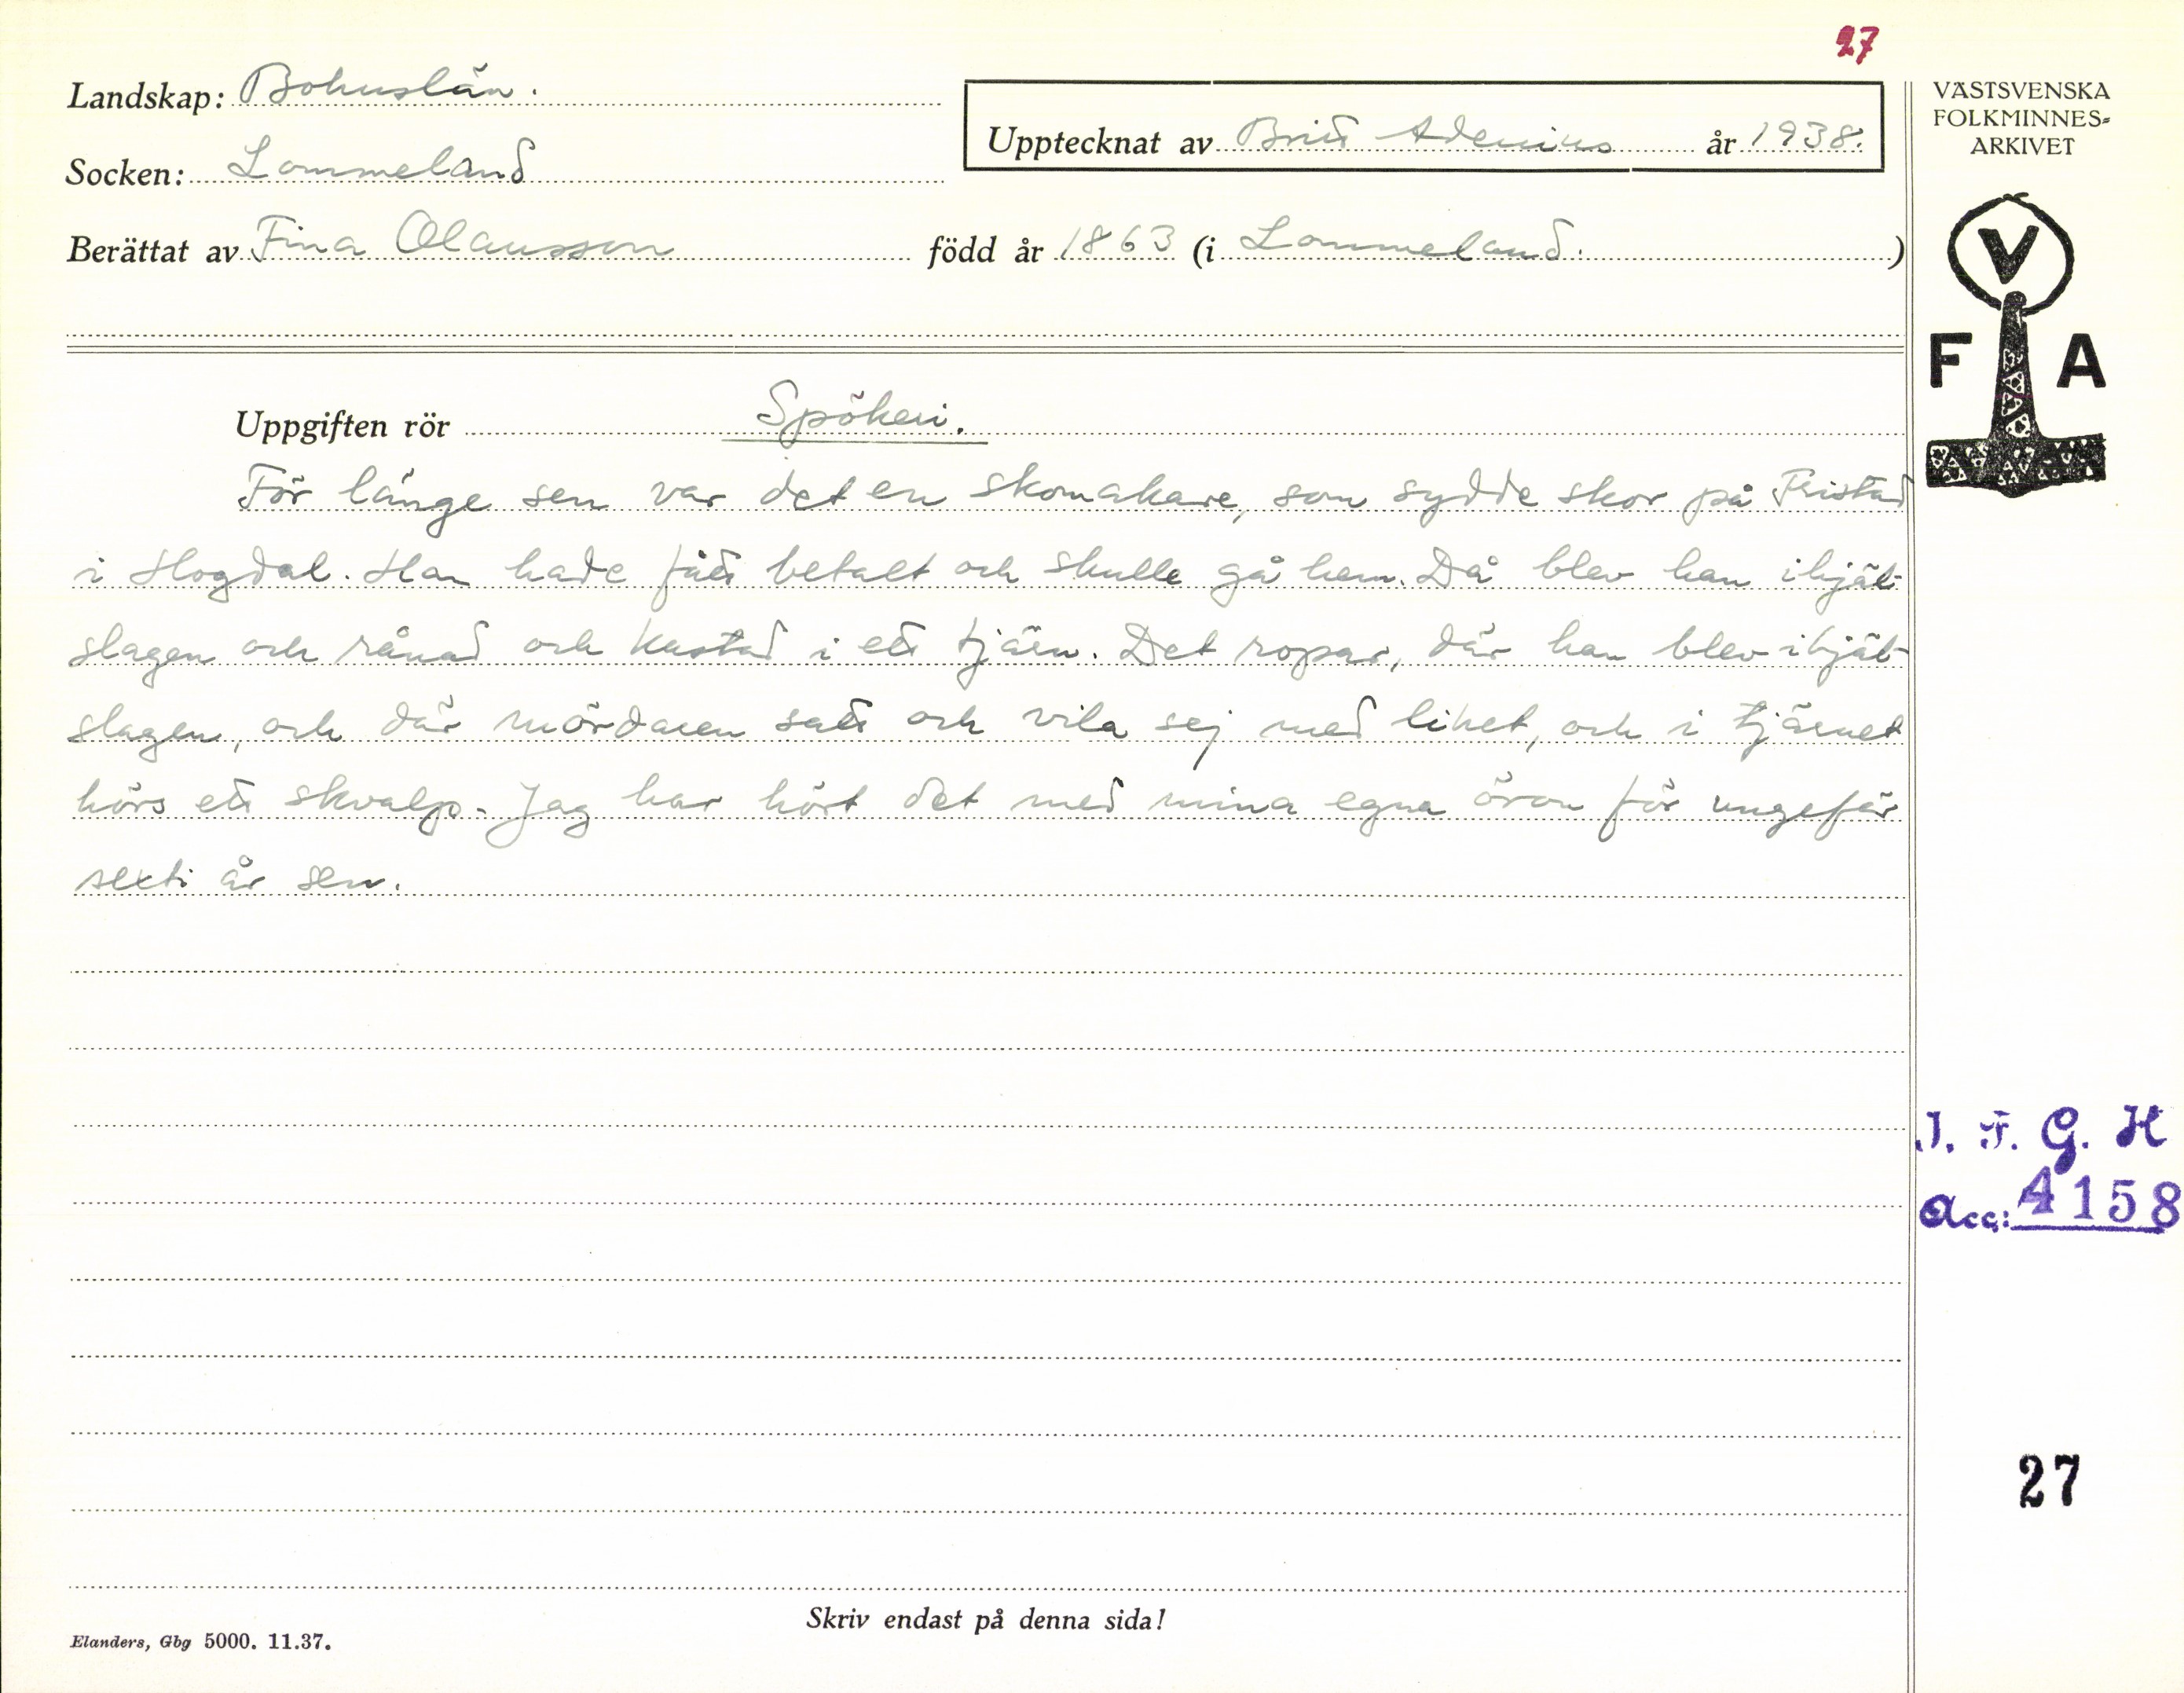 27
Landskap: Bohuslän.
Upptecknat av Britt Adenius år 1938.
Socken: Lommeland
Berättat av Fina Olausson född år 1863 (i Lommeland.)
Uppgiften rör Spökeri.
För länge sen var det en skomakare, som sydde skor på Fristad
i Hogdal. Han hade fått betalt och skulle gå hem. Då blev han ihjäl-
slagen och rånad och kastad i ett tjärn. Det ropar, där han blev ihjäl-
slagen, och där mördaren satt och vila sej med liket, och i tjärnet
hörs ett skvalp. Jag har hört det med mina egna öron för ungefär
sexti år sen.
Skriv endast på denna sida!
Elanders, Gbg 5000. 11.37.
VÄSTSVENSKA
FOLKMINNES-
ARKIVET
V
F A
I. F. G. H
Acc: 4158
27